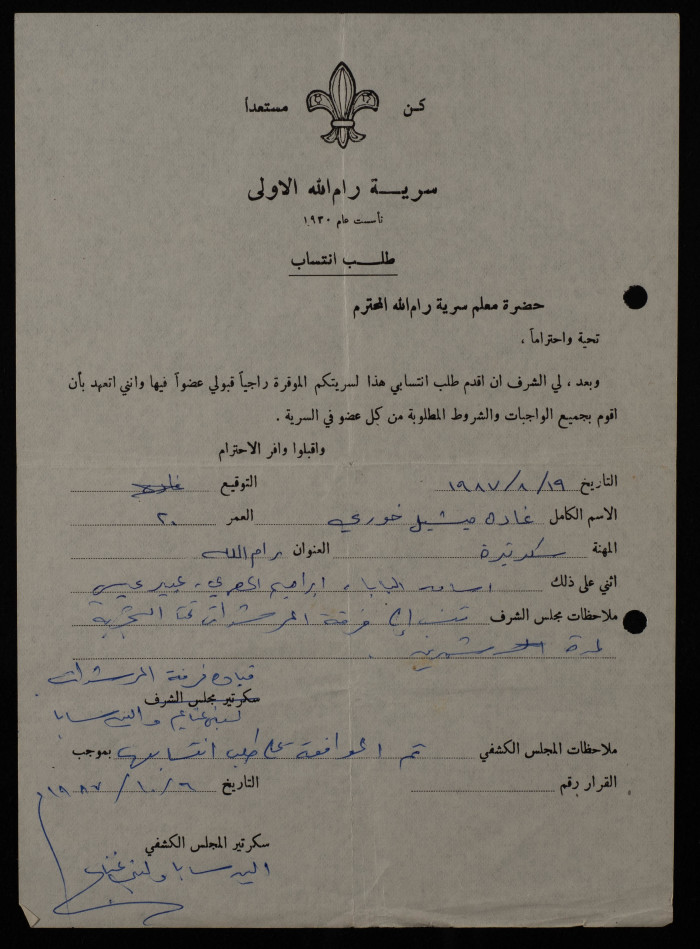 كـن مستعداً
سريـــة رام الله الاولى
تأسست عام ١٩٣٠
طلـــب انتساب
حضرة معلم سرية رام الله المحترم
تحية واحتراماً ،
وبعد ، لي الشرف ان اقدم طلب انتسابي هذا لسريتكم الموقرة راجياً قبولي عضواً فيها وانني اتعهد بأن
اقوم بجميع الواجبات والشروط المطلوبة من كل عضو في السرية .
واقبلوا وافر الاحترام
التاريخ ١٩٨٧/٨/١٩ التوقيع غاده
الاسم الكامل غاده ميشيل خوري العمر ٢٠
المهنة سكرتيرة العنوان رام الله
اثني على ذلك اسامه البابا ، ابراهيم ، عبير عيسى
ملاحظات مجلس الشرف تنسب إلى فرقة المرشدات تحت التجربة
لمدة شهرين .
قياده فرقة المرشدات
سكرتير مجلس الشرف
والين سابا
ملاحظات المجلس الكشفي تم الموافقة على طلب انتسابها بموجب
القرار رقم التاريخ ١٩٨٧/١٠/٦
سكرتير المجلس الكشفي
الين سابا ولبنى